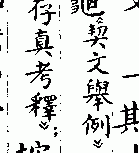 其
《契文舉例》
存真考釋》；